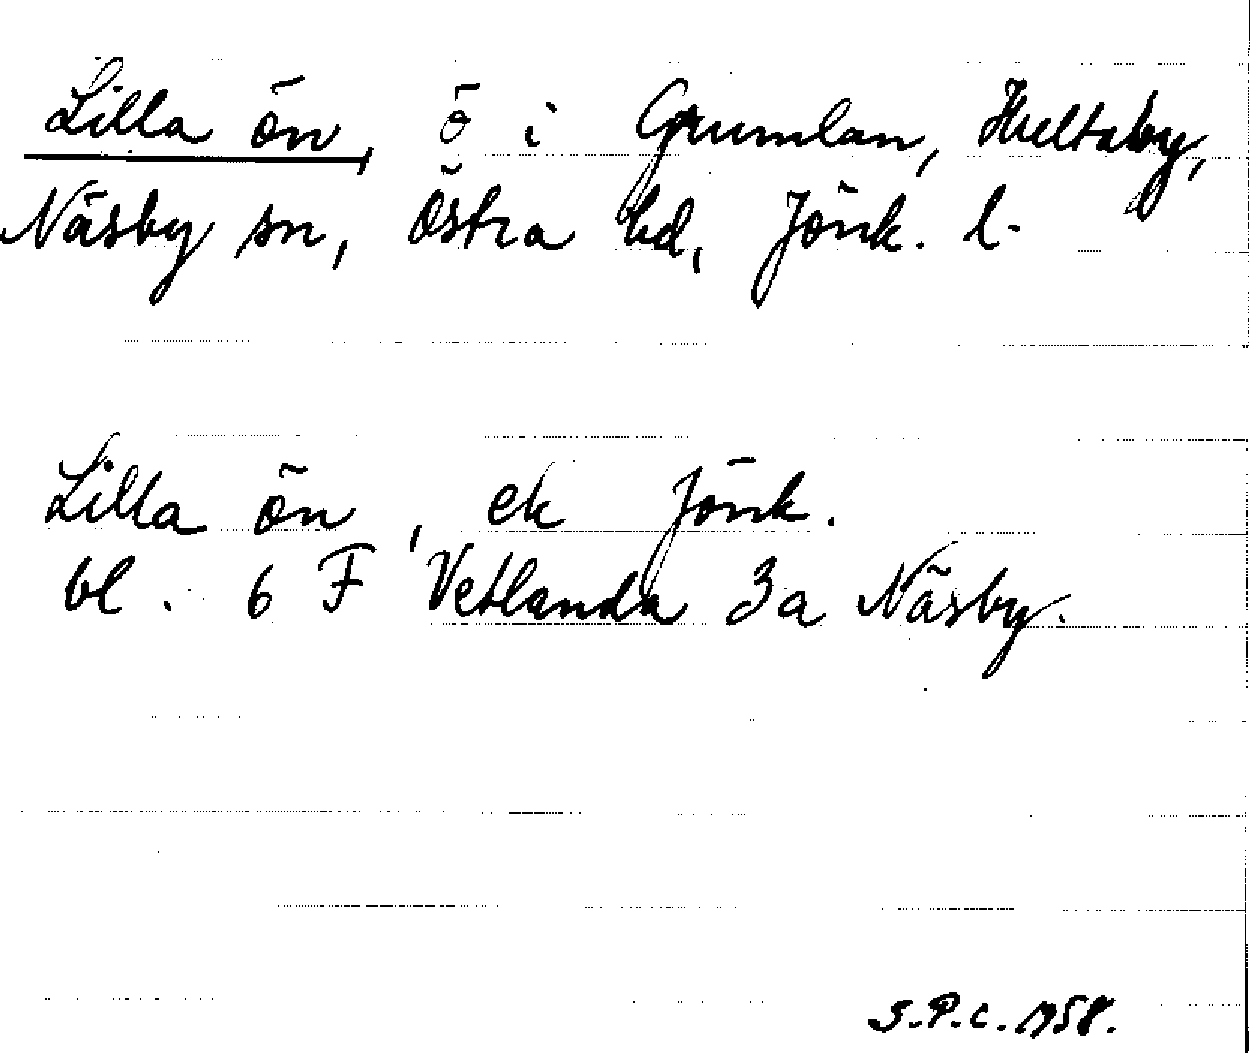 Lilla ön, ö i Grumlan, Hultaby,
Näsby sn, Östra hd, Jönk. l.
Lilla ön, ek Jönk.
bl. 6 F Vetlanda 3a Näsby.
S.P.C. 1958.